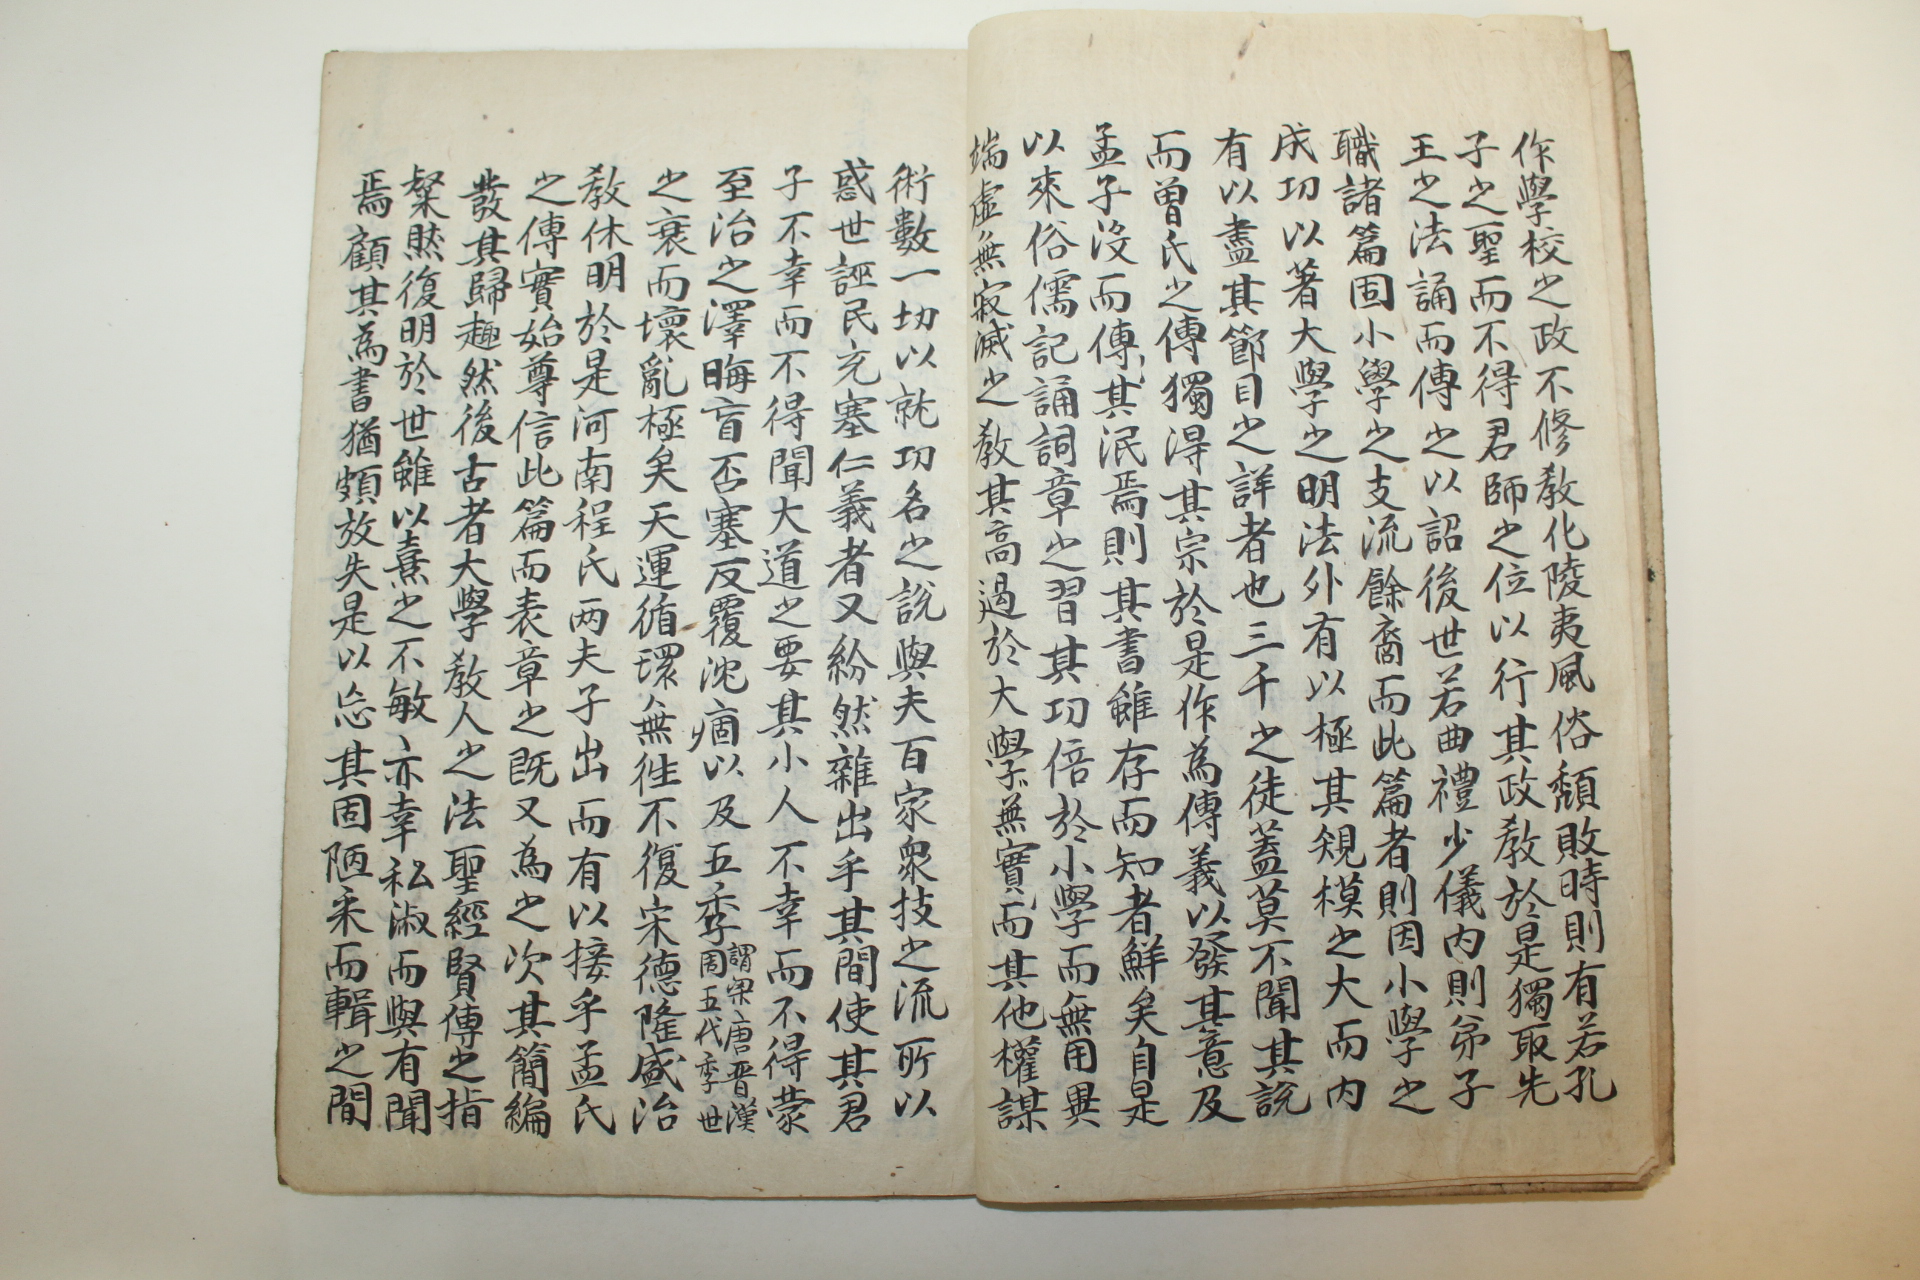 作學校之政不修教化陵夷風俗頹敗時則有若孔
子之聖而不得君師之位以行其政教於是獨取先
王之法誦而傳之以詔後世若曲禮少儀內則弟子
職諸篇固小學之支流餘裔而此篇者則因小學之
成功以著大學之明法外有以極其規模之大而內
有以盡其節目之詳者也三千之徒蓋莫不聞其說
而曾氏之傳獨得其宗於是作為傳義以發其意及
孟子沒而傳其泯焉則其書雖存而知者鮮矣自是
以來俗儒記誦詞章之習其功倍於小學而無用異
端虛無寂滅之教其高過於大學無實而其他權謀
術數一切以就功名之說與夫百家衆技之流所以
惑世誣民充塞仁義者又紛然雜出乎其間使其君
子不幸而不得聞大道之要其小人不幸而不得蒙
至治之澤晦盲否塞反覆沈痼以及五季謂宋唐晋漢周五代季世
之衰而壞亂極矣天運循環無徃不復宋德隆盛治
教休明於是河南程氏两夫子出而有以接乎孟氏
之傳實始尊信此篇而表章之既又為之次其簡編
發其歸趣然後古者大學教人之法聖經賢傳之指
粲然復明於世雖以熹之不敏亦幸私淑而與有聞
焉顧其為書猶頗放失是以忘其固陋采而輯之間